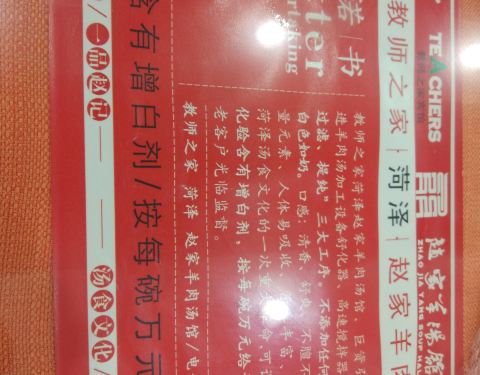 TEACHERS
ZHAO JIA YANG SOUP HALL
教师之家|菏泽|赵家羊肉
诺|书
tter
rtaking
教师之家菏泽赵家羊肉汤馆、巨资引
进羊肉汤加工设备舒化器、高速搅拌器
过滤、提纯”三大工序。不添加任何
白色如奶。口感：清香、舒爽、不腥不
量元素、人体易吸收、丰富、
菏泽汤食文化的一次重大命可
化验含有增白剂，按每碗万元给
老客户光临监督。
教师之家 菏泽 赵家羊肉汤馆/电
含有增白剂/按每碗万元
/一品赵记 汤食文化/